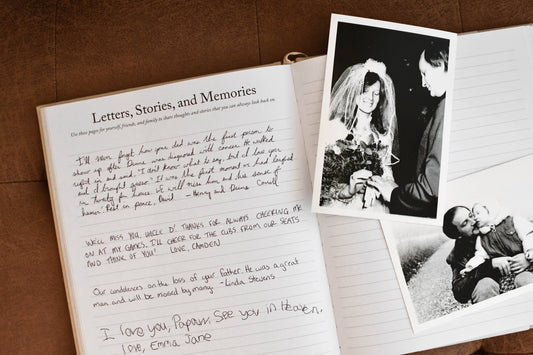 Letters, Stories, and Memories
Use these pages for yourself, friends, and family to share thoughts and stories that you can always look back on.
I'll never forget how your dad was the first person to
show up after Deena was diagnosed with cancer. He walked
right in and said, "I don't know what to say, but I love you
and I brought queso." It was the first moment we had laughed
in twenty-four hours. We will miss him and his sense of
humor. Rest in peace, David. - Henry and Deena Conwell
WE'LL MISS YOU, UNCLE D! THANKS FOR ALWAYS CHEERING ME
ON AT MY GAMES. I'LL CHEER FOR THE CUBS FROM OUR SEATS
AND THINK OF YOU! LOVE, CAMDEN
Our condolences on the loss of your father. He was a great
man and will be missed by many. - Linda Stevens
I love you, Papaw. See you in Heaven.
Love, Emma Jane